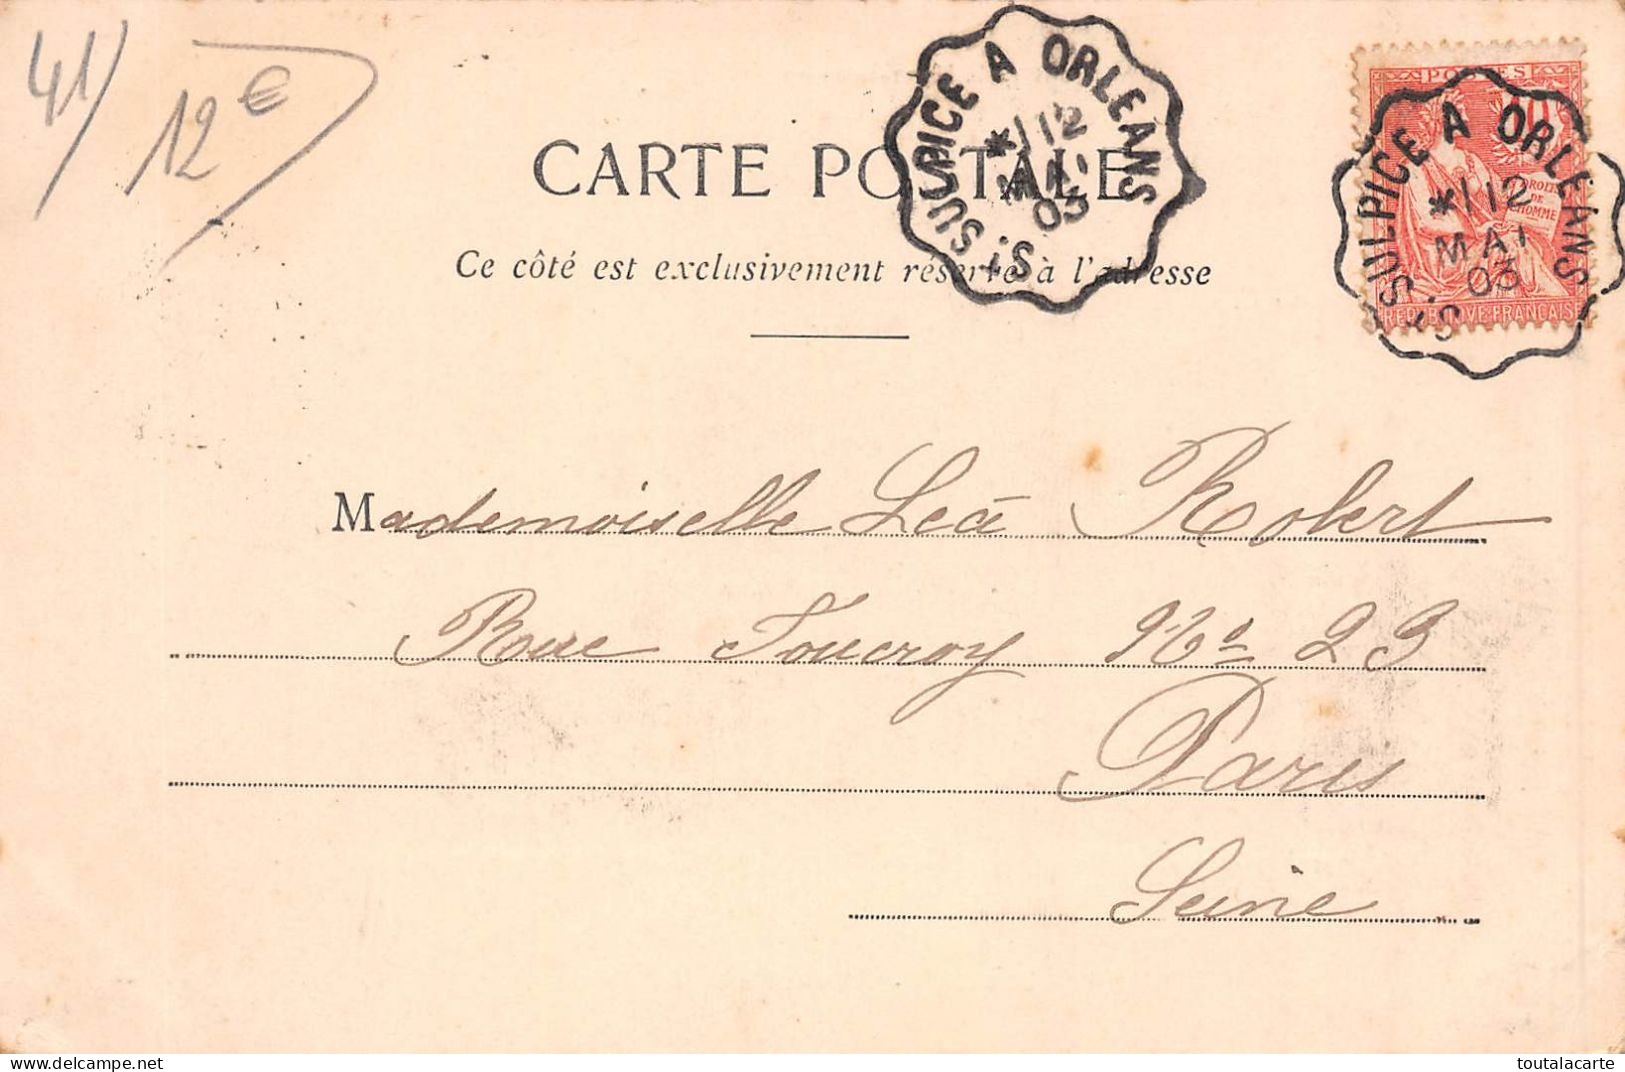 41/
12 €
CARTE POSTALE
Ce côté est exclusivement réservé à l'adresse
ST SULPICE A ORLEANS
*/12
MAI
03
POSTES
10
DROITS
DE
L'HOMME
REPUBLIQUE FRANÇAISE
ST SULPICE A ORLEANS
*/12
MAI
03
Mademoiselle Léa Robert
Rue Foucroy No 23
Paris
Seine
delcampe.net
toutalacarte